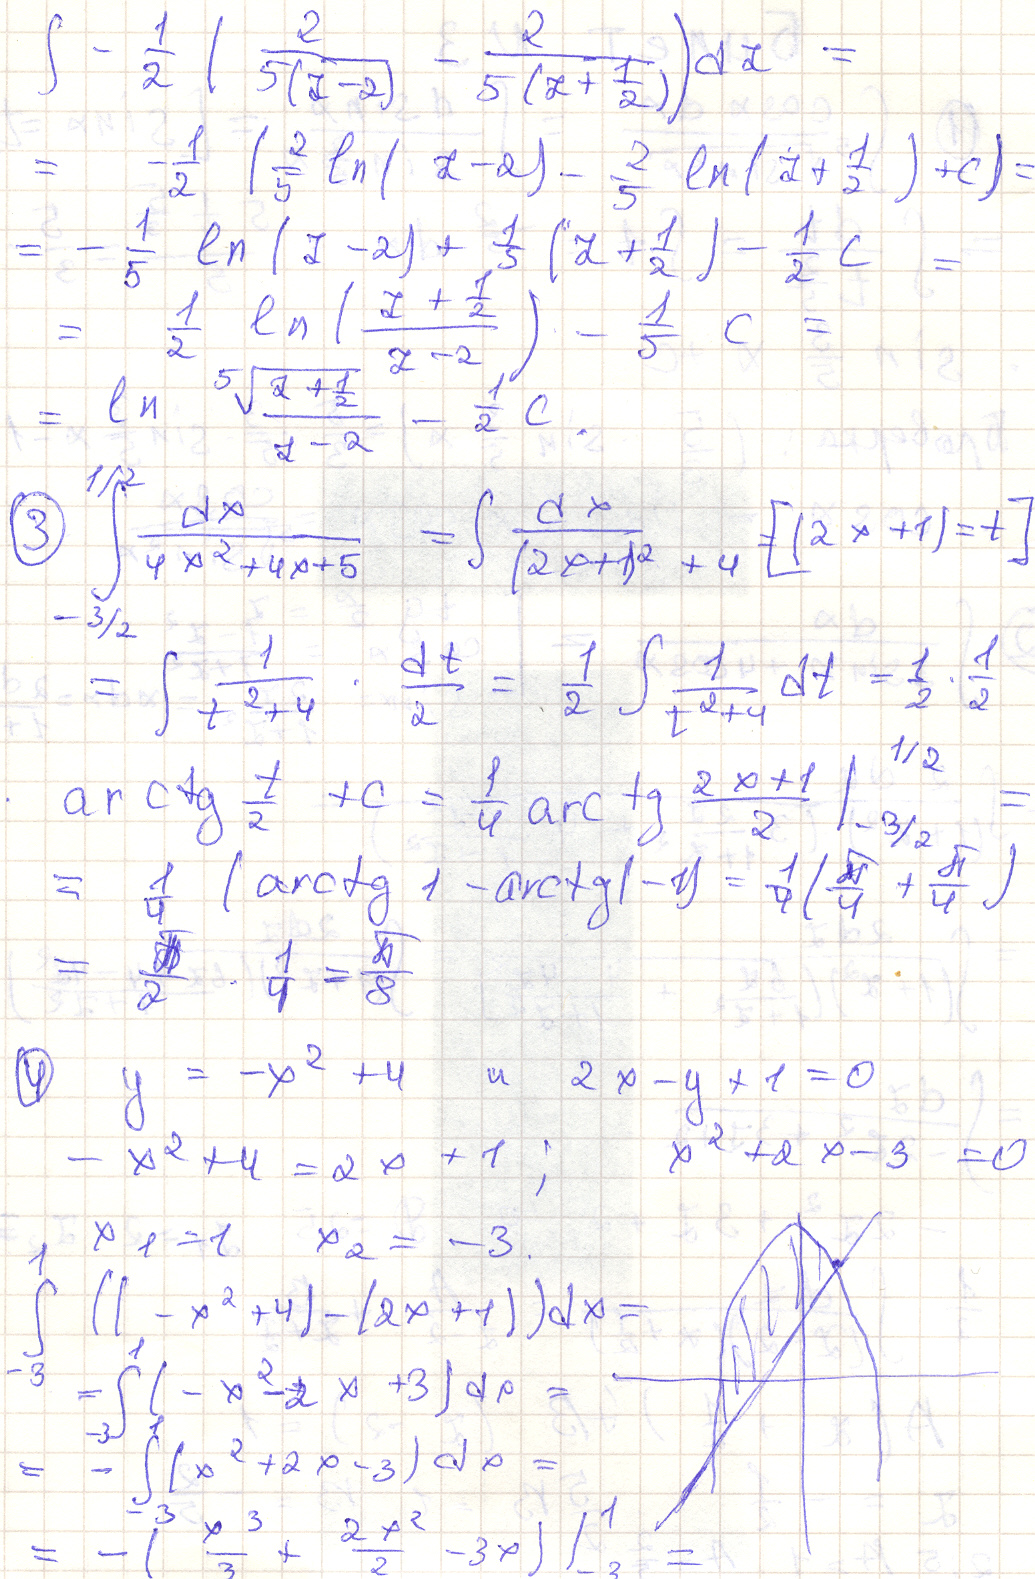 ∫ - 1/2 ( 2/(5(z-2)) - 2/(5(z+1/2)) ) dz =
= -1/2 ( 2/5 ln(z-2) - 2/5 ln(z+1/2) + C ) =
= - 1/5 ln(z-2) + 1/5 (z+1/2) - 1/2 C =
= 1/2 ln( (z+1/2)/(z-2) ) - 1/5 C =
= ln ⁵√(z+1/2)/(z-2) - 1/2 C.
③ ∫_{-3/2}^{1/2} dx/(4x²+4x+5) = ∫ dx/((2x+1)²+4) = [(2x+1)=t]
= ∫ 1/(t²+4) · dt/2 = 1/2 ∫ 1/(t²+4) dt = 1/2 · 1/2
· arctg t/2 + C = 1/4 arctg (2x+1)/2 |_{-3/2}^{1/2} =
= 1/4 (arctg 1 - arctg(-1) = 1/4 (π/4 + π/4)
= π/2 · 1/4 = π/8
④ y = -x²+4 и 2x-y+1=0
-x²+4=2x+1; x²+2x-3=0
x₁=1 x₂=-3.
∫_{-3}^{1} ((-x²+4)-(2x+1))dx=
=∫_{-3}^{1} (-x²-2x+3)dx=
= -∫_{-3}^{1} (x²+2x-3)dx=
= -( x³/3 + 2x²/2 - 3x) |_{-3}^{1} =